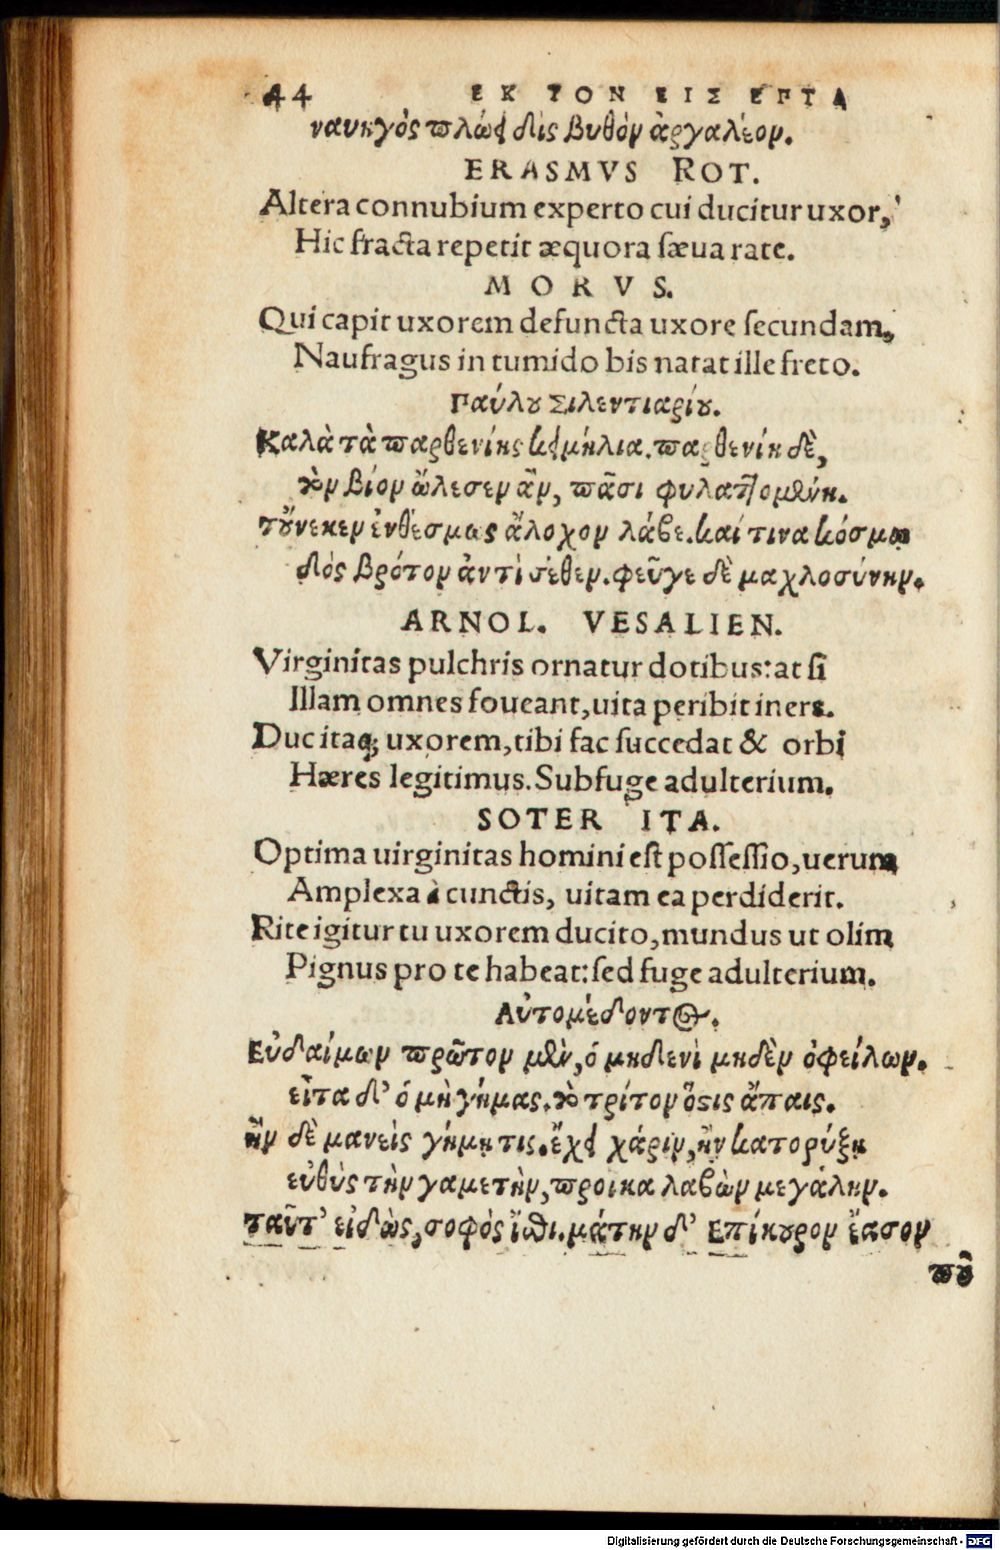 44 ΕΚ ΤΟΝ ΕΙΣ ΕΠΤΑ
ναυηγὸς πλώει δὶς βυθὸν ἀργαλέον.
ERASMVS ROT.
Altera connubium experto cui ducitur uxor,
Hic fracta repetit æquora sæua rate.
MORVS.
Qui capit uxorem defuncta uxore secundam,
Naufragus in tumido bis natat ille freto.
Παύλου Σιλεντιαρίου.
Καλὰ τὰ παρθενίης κειμήλια. παρθενίη δὲ,
τὸν βίον ὤλεσεν ἂν, πᾶσι φυλαττομένη.
τοὔνεκεν ἐνθέσμως ἄλοχον λάβε. καί τινα κόσμῳ
δὸς βρότον ἀντὶ σέθεν. φεῦγε δὲ μαχλοσύνην.
ARNOL. VESALIEN.
Virginitas pulchris ornatur dotibus: at si
Illam omnes foueant, uita peribit iners.
Duc itaq; uxorem, tibi fac succedat & orbi
Hæres legitimus. Subfuge adulterium.
SOTER ITA.
Optima uirginitas homini est possessio, uerum
Amplexa à cunctis, uitam ea perdiderit.
Rite igitur tu uxorem ducito, mundus ut olim
Pignus pro te habeat: sed fuge adulterium.
Αὐτομέδοντος.
Εὐδαίμων πρῶτον μὲν, ὁ μηδενὶ μηδὲν ὀφείλων.
εἶτα δ' ὁ μὴ γήμας. τὸ τρίτον ὅστις ἄπαις.
ἢν δὲ μανεὶς γήμῃ τις. ἔχει χάριν, ἢν κατορύξῃ
εὐθὺς τὴν γαμετὴν, προικα λαβὼν μεγάλην.
ταῦτ' εἰδὼς, σοφὸς ἴσθι. μάτην δ' Επίκουρον ἔασον
ποῦ
Digitalisierung gefördert durch die Deutsche Forschungsgemeinschaft - DFG